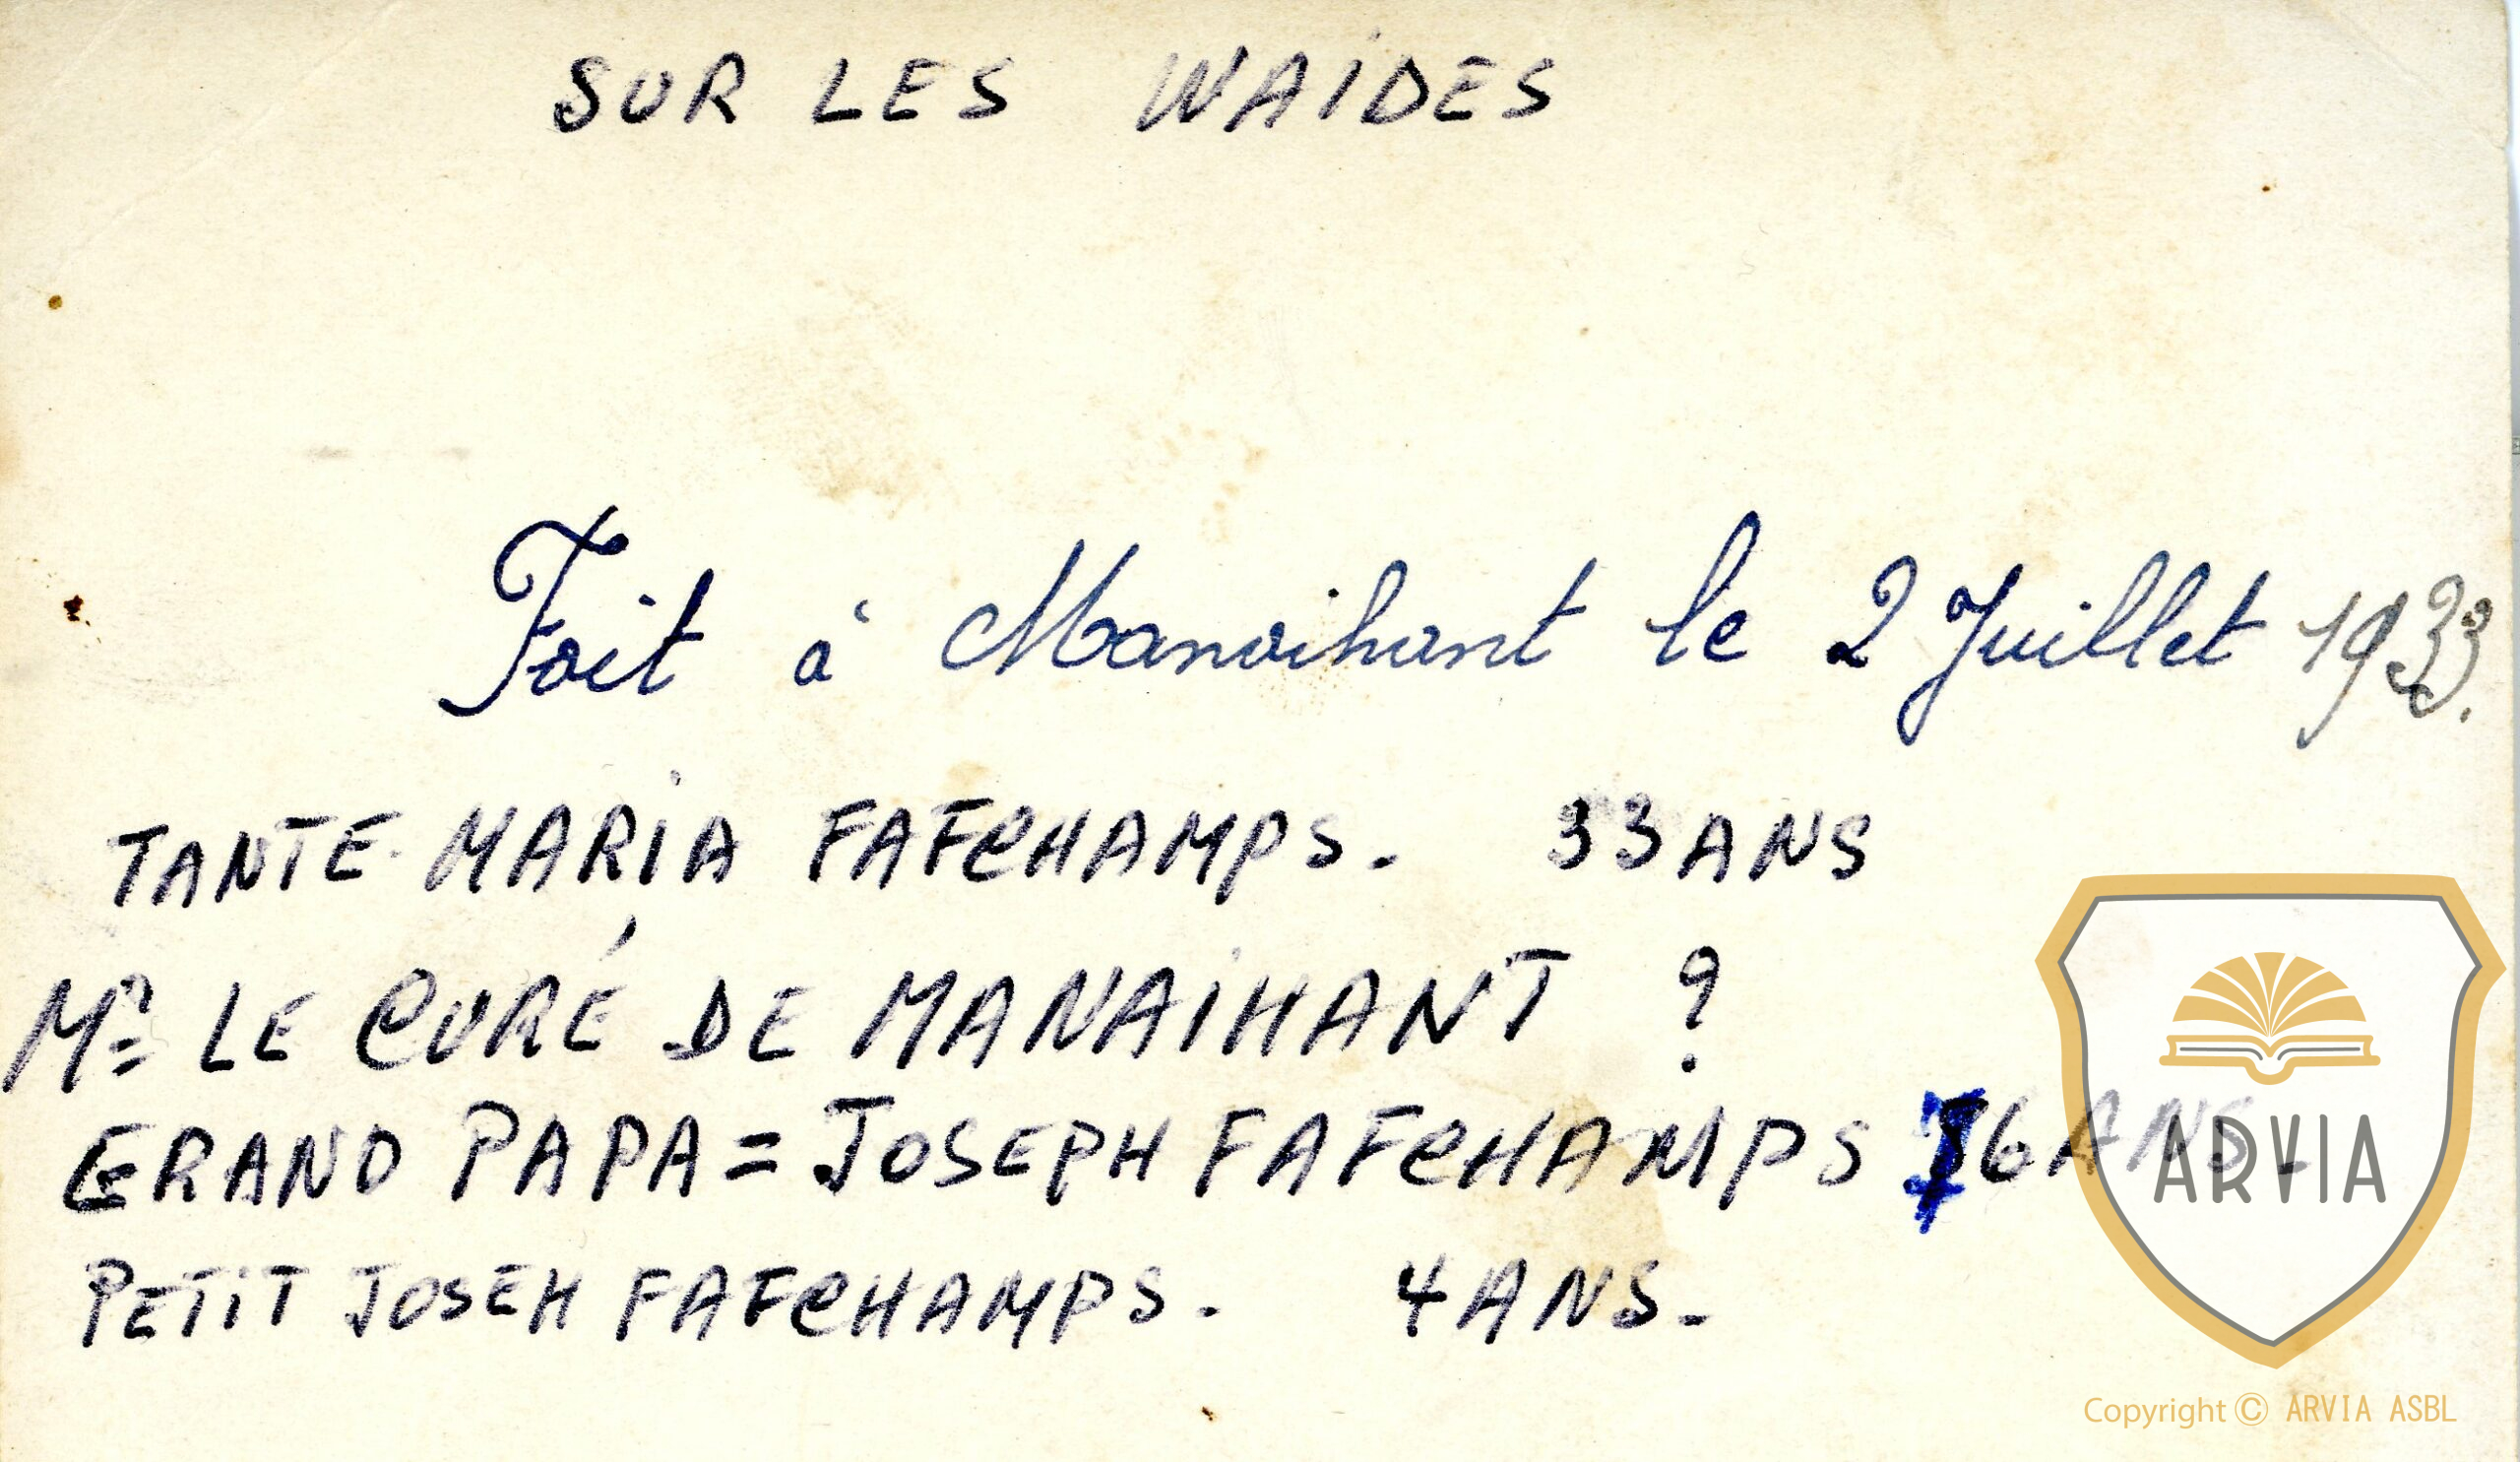 SUR LES WAIDES
Fait à Manaihant le 2 Juillet 1933.
TANTE MARIA FAFCHAMPS. 33 ANS
Mr LE CURÉ DE MANAIHANT ?
GRAND PAPA = JOSEPH FAFCHAMPS 76 ANS.
PETIT JOSEH FAFCHAMPS. 4 ANS.
ARVIA
Copyright © ARVIA ASBL